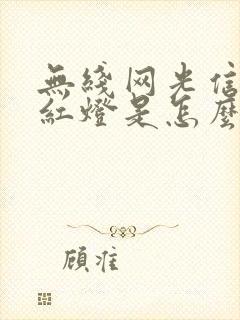 無綫网光信
紅燈是怎麼
顾准